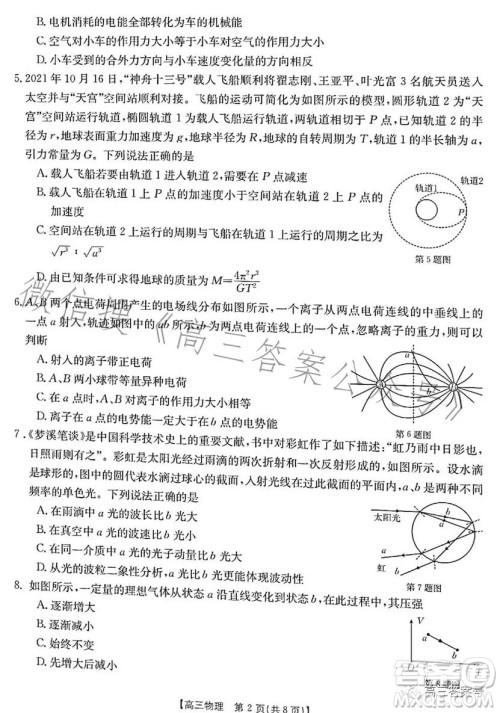 B. 电机消耗的电能全部转化为车与人的机械能
C. 空气对小车的作用力大小大于小车对空气的作用力大小
D. 空气对小车的作用力与小车的速度方向相反
5. 2021 年 10 月 16 日,“神舟十三号”载人飞船顺利将翟志刚、王亚平、叶光富 3 名航天员送入
太空并与“天宫”空间站顺利对接。飞船的运动可简化为如图所示的模型,圆形轨道 2 为“天
宫”空间站运行轨道,椭圆轨道 1 为载人飞船运行轨道,两轨道相切于 P 点,轨道 2 的半
径为 r,地球的半径为 R,地球的自转周期为 T,轨道 1 的半长轴为 a,
引力常量为 G。下列说法正确的是
A. 载人飞船若要由轨道 1 进入轨道 2,需要在 P 点减速
B. 载人飞船在轨道 1 上 P 点的加速度小于空间站在轨道 2 上 P 点
的加速度
C. 空间站在轨道 2 上运行的周期与飞船在轨道 1 上运行的周期之比为
√r³ : √a³
D. 由题可得地球的质量为 M=4π²r³/GT²
轨道1
轨道2
P
第 5 题图
6. A、B 两个点电荷周围产生的电场线分布如图所示,一个离子从两点电荷连线的中垂线上的
一点 a 射入,轨迹如图中的虚线所示,b 为轨迹上的一个点,忽略离子的重力,则可以
判断
A. 射入的离子带正电荷
B. A、B 两点电荷为等量异种电荷
C. a 点的电场强度大小可能等于 b 点的电场强度大小
D. 离子在 a 点的电势能一定大于在 b 点的电势能
a
b
第 6 题图
7. 《梦溪笔谈》是中国科学技术史上的重要文献,书中对彩虹作了如下描述:“虹乃雨中日影也,
日照雨则有之”。彩虹是太阳光经过雨滴的两次折射和一次反射形成的。如图所示,设水滴
是球形的,图中的圆代表水滴过球心的截面,太阳光的入射光线在过此截面的平面内,a、b 是两种不同
频率的单色光。下列说法正确的是
A. 在雨滴中 a 光的波长大于 b 光的波长
B. 在真空中 a 光的速度大于 b 光的速度
C. 在同一介质中,a 光的折射率大于 b 光的折射率
D. 从光的波粒二象性分析,a 光的光子能量小于 b 光
太阳光
a
b
虹
第 7 题图
8. 如图所示,一定量的理想气体从状态 a 沿直线变化到状态 b,在此过程中,其压强
A. 逐渐增大
B. 逐渐减小
C. 始终不变
D. 先增大后减小
V
a
b
第 8 题图
【高三物理 第 2 页(共 8 页)】
微信搜《高三答案公众号》
高三答案号